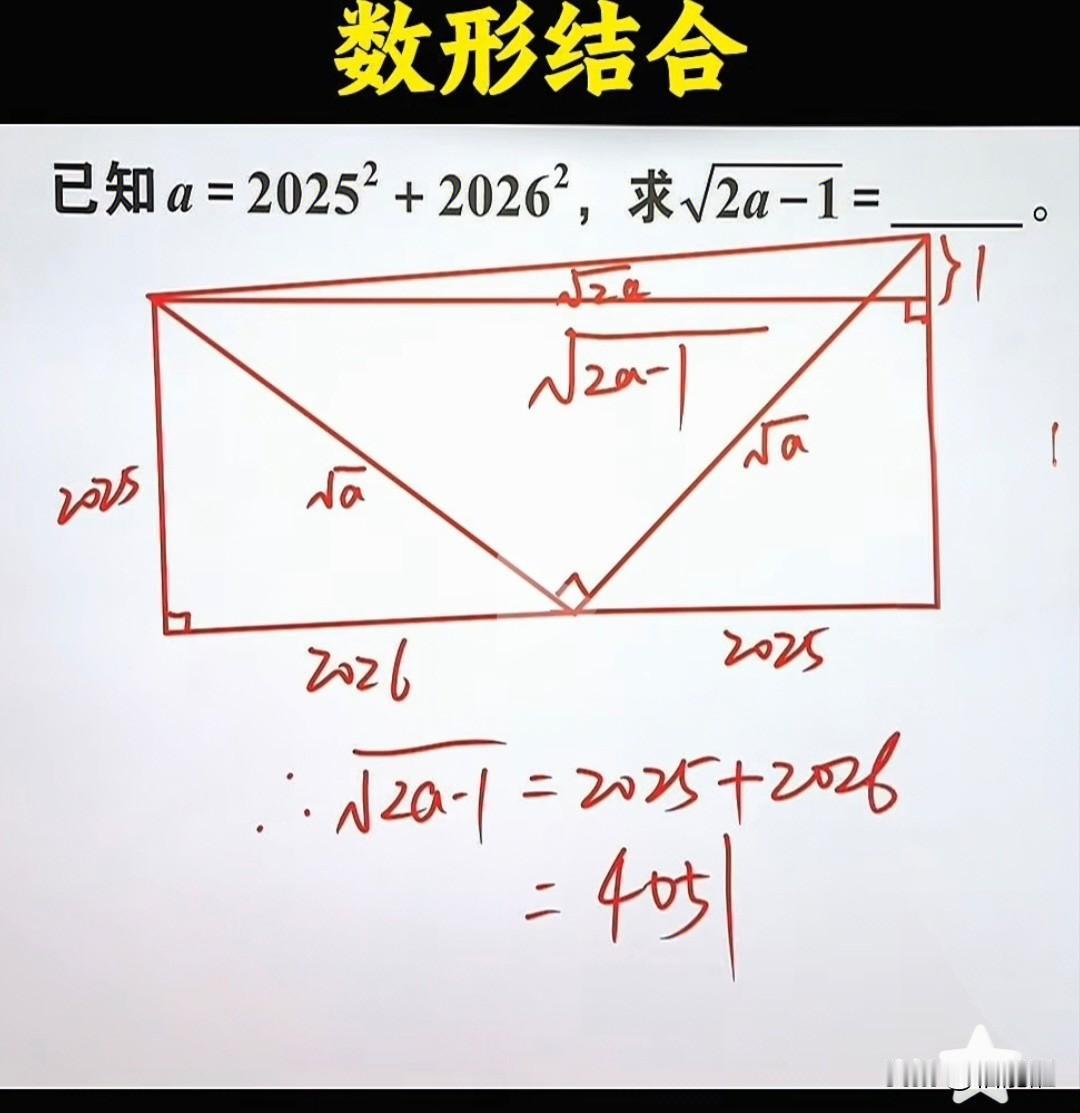 数形结合
已知 a = 2025² + 2026²，求√(2a−1) = ______。
√2a
}1
√(2a-1)
√a
√a
2025
1
2026
2025
∴ √(2a-1) = 2025+2026
= 4051